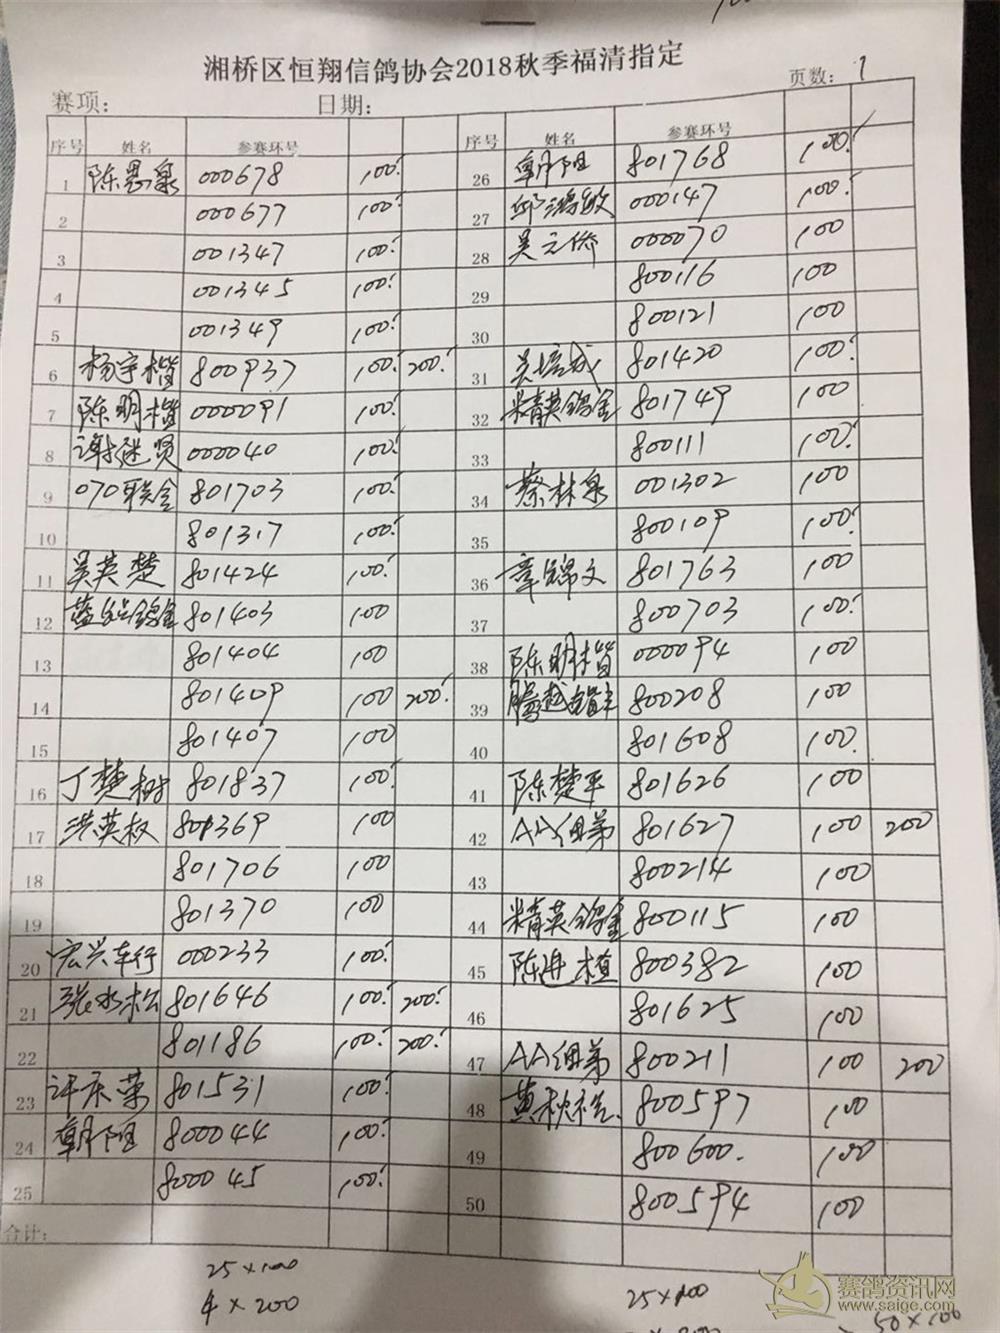 湘桥区恒翔信鸽协会2018秋季福清指定
赛项: 日期: 页数: 1
序号 姓名 参赛环号
1 陈恩泉 000678 100!
2 000677 100!
3 001347 100!
4 001345 100!
5 001349 100!
6 杨宇楷 800937 100! 200!
7 陈明楷 000091 100!
8 谢继贤 000040 100!
9 070联合 801703 100!
10 801317 100!
11 吴英楚 801424 100!
12 801403 100
13 801404 100
14 801409 100 200!
15 801407 100
16 丁楚树 801837 100!
17 洪英权 801369 100
18 801706 100
19 801370 100
20 宏兴车行 000233 100!
21 张水松 801646 100! 200!
22 801186 100! 200!
23 许承荣 801531 100!
24 朝阳 800044 100!
25 800045 100!
合计:
序号 姓名 参赛环号
26 朝阳 801768 100!
27 邱鸿敏 000147 100!
28 吴元侨 000070 100
29 800116 100
30 800121 100
31 吴培成 801420 100!
32 精英鸽舍 801749 100
33 800111 100!
34 蔡林泉 001302 100
35 800109 100!
36 章锦文 801763 100
37 800703 100!
38 陈明楷 000094 100
39 800208 100
40 801608 100.
41 陈楚平 801626 100
42 AA细弟 801627 100 200
43 800214 100
44 精英鸽舍 800115 100
45 陈进植 800382 100
46 801625 100
47 AA细弟 800211 100 200
48 800597 100
49 800600. 100
50 800594 100
25×100
4×200
25×100
50×100
赛鸽资讯网
www.saige.com